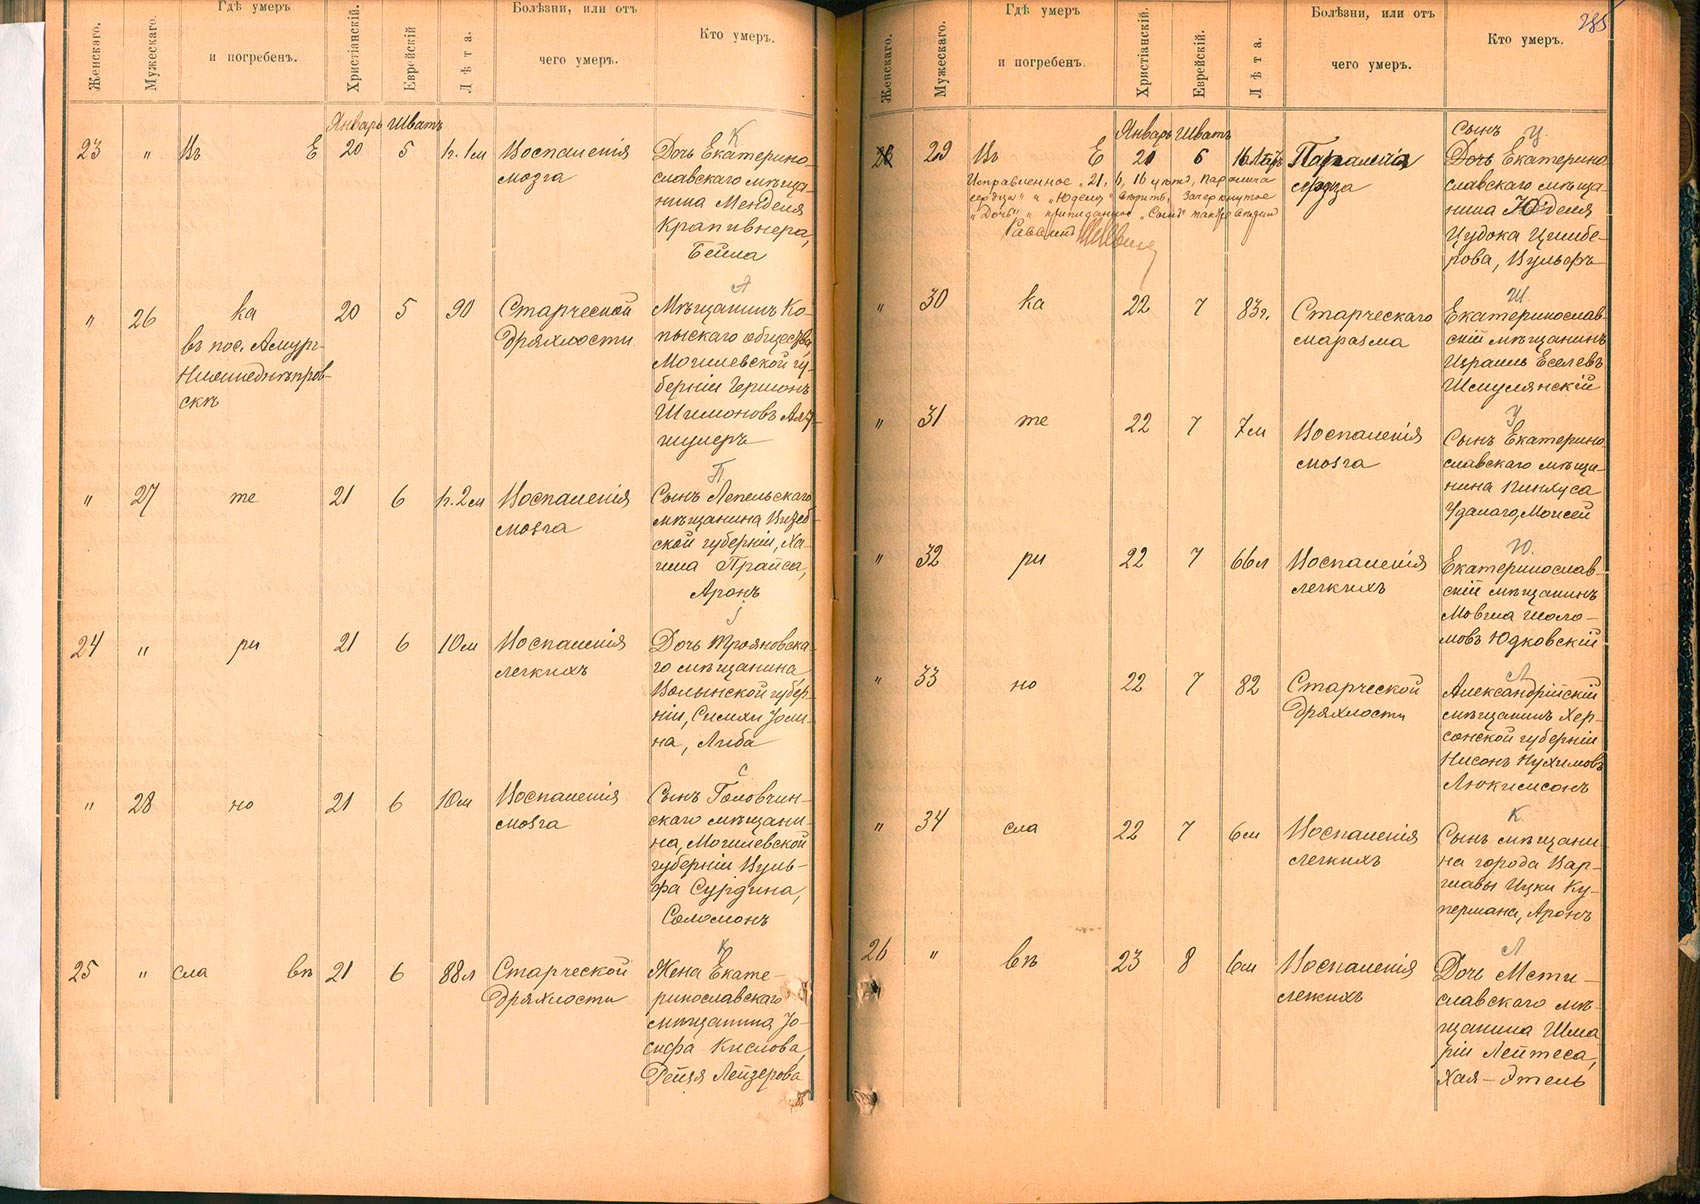 Женскаго.
Мужескаго.
Гдѣ умеръ
и погребенъ.
Христіанскій.
Еврейскій
Лѣта.
Болѣзни, или отъ
чего умеръ.
Кто умеръ.
Январь Шватъ
23 " Въ Е 20 5 1м Воспаленія
мозга
К
Дочь Екатерино-
славскаго мѣща-
нина Менделя
Крапивнера,
Бейла
" 26 ка 20 5 90 Старческой
дряхлости
въ пос. Амуръ-
Нижнеднѣпров-
скѣ
А
Мѣщанинъ Ко-
пыскаго общества
Могилевской гу-
берніи Гершонъ
Шимоновъ
" 27 те 21 6 2м Воспаленія
мозга
П
Сынъ Лепельскаго
мѣщанина Витеб-
ской губерніи, Ха-
има Прайса,
Аронъ
24 " ри 21 6 10м Воспаленія
легкихъ
Дочь Трояновска-
го мѣщанина
Волынской губер-
ніи, Симхи
на, Либа
" 28 но 21 6 10м Воспаленія
мозга
С
Сынъ Головчин-
скаго мѣщани-
на, Могилевской
губерніи Вуль-
фа Сурдина,
Соломонъ
25 " сла вѣ 21 6 88л Старческой
дряхлости
К
Жена Екате-
ринославскаго
мѣщанина Іо-
сифа Кислова,
Рейзя Лейзерова
285
Женскаго.
Мужескаго.
Гдѣ умеръ
и погребенъ.
Христіанскій.
Еврейскій.
Лѣта.
Болѣзни, или отъ
чего умеръ.
Кто умеръ.
Январь Шватъ
29 Въ Е 21 6 16 Паралича
сердца
Исправленное "21, 6, 16 Паралича
сердца" и "Юделя" вѣрить, зачеркнутое
"Дочь" и "Сынъ"
Раввинъ
Ц.
Сынъ
Дочь Екатерино-
славскаго мѣща-
нина Юделя
Цудока Цимбе-
рова, Вульфъ
" 30 ка 22 7 83г. Старческаго
маразма
Ш.
Екатеринослав-
скій мѣщанинъ
Израиль Еселевъ
Шмулянскій
" 31 те 22 7 7м Воспаленія
мозга
У
Сынъ Екатерино-
славскаго мѣща-
нина Пинхуса
Удалаго, Моисей
" 32 ри 22 7 66л Воспаленія
легкихъ
Ю.
Екатеринослав-
скій мѣщанинъ
Мовша Шоло-
мовъ Юдковскій
" 33 но 22 7 82 Старческой
дряхлости
Л
Александрійскій
мѣщанинъ Хер-
сонской губерніи
Нисонъ Нухимовъ
Люкимсонъ
" 34 сла 22 7 6м Воспаленія
легкихъ
К
Сынъ мѣщани-
на города Вар-
шавы Ицки Ку-
пермана, Аронъ
26 " вѣ 23 8 6м Воспаленія
легкихъ
Л
Дочь Мсти-
славскаго мѣ-
щанина Шма
ріи Лейтеса,
Хая-Этель